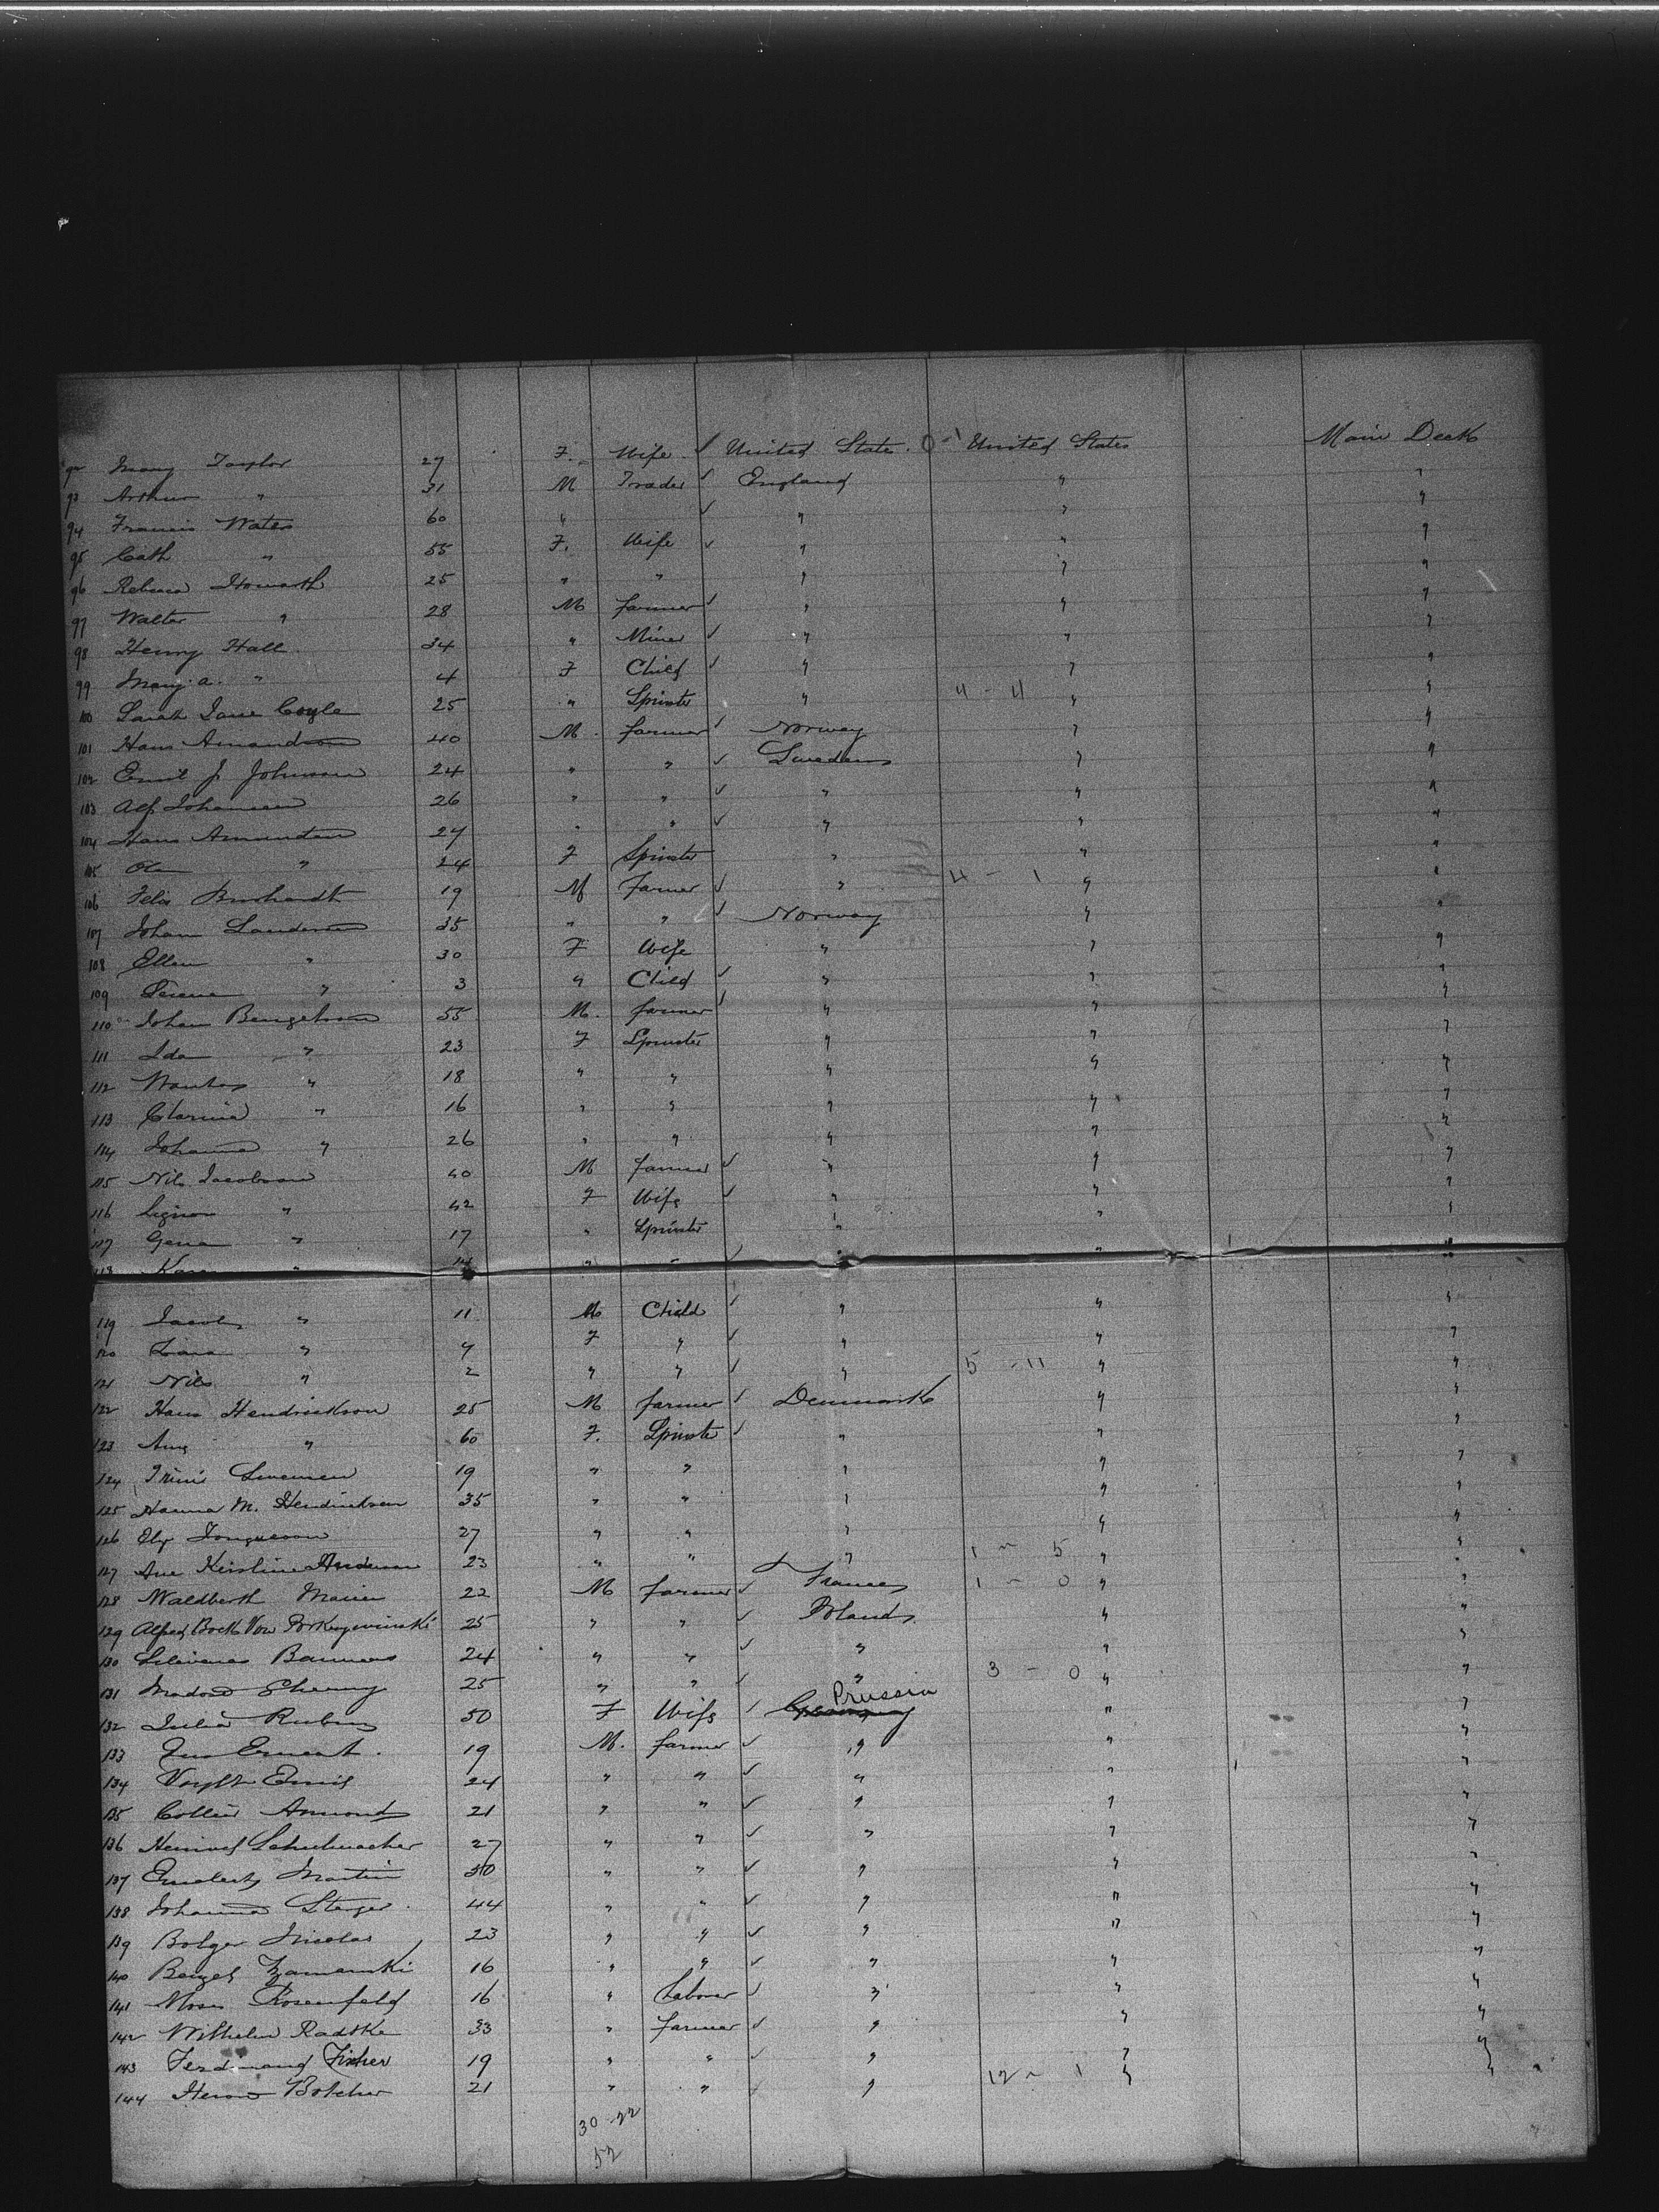 92 Mary Taylor 27 F. Wife ✓ United State. 0-1 United States Main Deck
93 Arthur " 31 M Trader ✓ England " "
94 Francis Waters 60 " ✓ " " "
95 Cath " 55 F. Wife ✓ " " "
96 Rebecca Howarth 25 " " " " "
97 Walter " 28 M farmer ✓ " " "
98 Henry Hall 34 " Miner ✓ " " "
99 Mary A. " 4 F Child ✓ " " "
100 Sarah Jane Coyle 25 " Spinster " 4-4 " "
101 Hans Amandson 40 M. farmer ✓ Norway " "
102 Emil J. Johnson 24 " " ✓ Sweden " "
103 Alf. Johansen 26 " " ✓ " " "
104 Hans Amundson 27 " " ✓ " " "
105 " 24 F Spinster " " "
106 Felix Burhardt 19 M Farmer ✓ " 4-1 " "
107 Johan 35 " " ✓ Norway " "
108 Ellen " 30 F Wife " " "
109 " 3 " Child ✓ " " "
110 Johan Bengetson 55 M. farmer ✓ " " "
111 Ida " 23 F Spinster " " "
112 " 18 " " " " "
113 " 16 " " " " "
114 Johanna " 26 " " " " "
115 Nils Jacobson 40 M farmer ✓ " " "
116 " 42 F Wife ✓ " " "
117 Gena " 17 " Spinster " " "
118 " 14 " " ✓ " " "
119 Jacob " 11 M Child ✓ " " "
120 " F " ✓ " " "
121 Nils " 2 " " ✓ " 5-11 " "
122 Hans Hendrickson 25 M farmer ✓ Denmark " "
123 " 60 F. Spinster ✓ " " "
124 19 " " " " "
125 Hanna M. Hendrickson 35 " " " " "
126 27 " " " " "
127 Ane Kirstine Anderson 23 " " " 1-5 " "
128 Waldberth 22 M farmer ✓ France 1-0 " "
129 Alfred Bock Von 25 " " ✓ Poland " "
130 24 " " ✓ " " "
131 25 " " ✓ " 3-0 " "
132 Julia Rubin 50 F Wife ✓ Germany Prussia " "
133 Ernest. 19 M. farmer ✓ " " "
134 Emil 24 " " ✓ " " "
135 Collin Armond 21 " " ✓ " " "
136 Heinrich Schuhmacher 27 " " ✓ " " "
137 Martin 30 " " ✓ " " "
138 Johanna 44 " " ✓ " " "
139 Bolger Nicolas 23 " " ✓ " " "
140 16 " " ✓ " " "
141 Moses Rosenfeld 16 " Laborer ✓ " " "
142 Wilhelm Radtke 33 " farmer ✓ " " "
143 Ferdinand Fischer 19 " " ✓ " " "
144 Botcher 21 " " ✓ " 12-1 " "
30-22
52